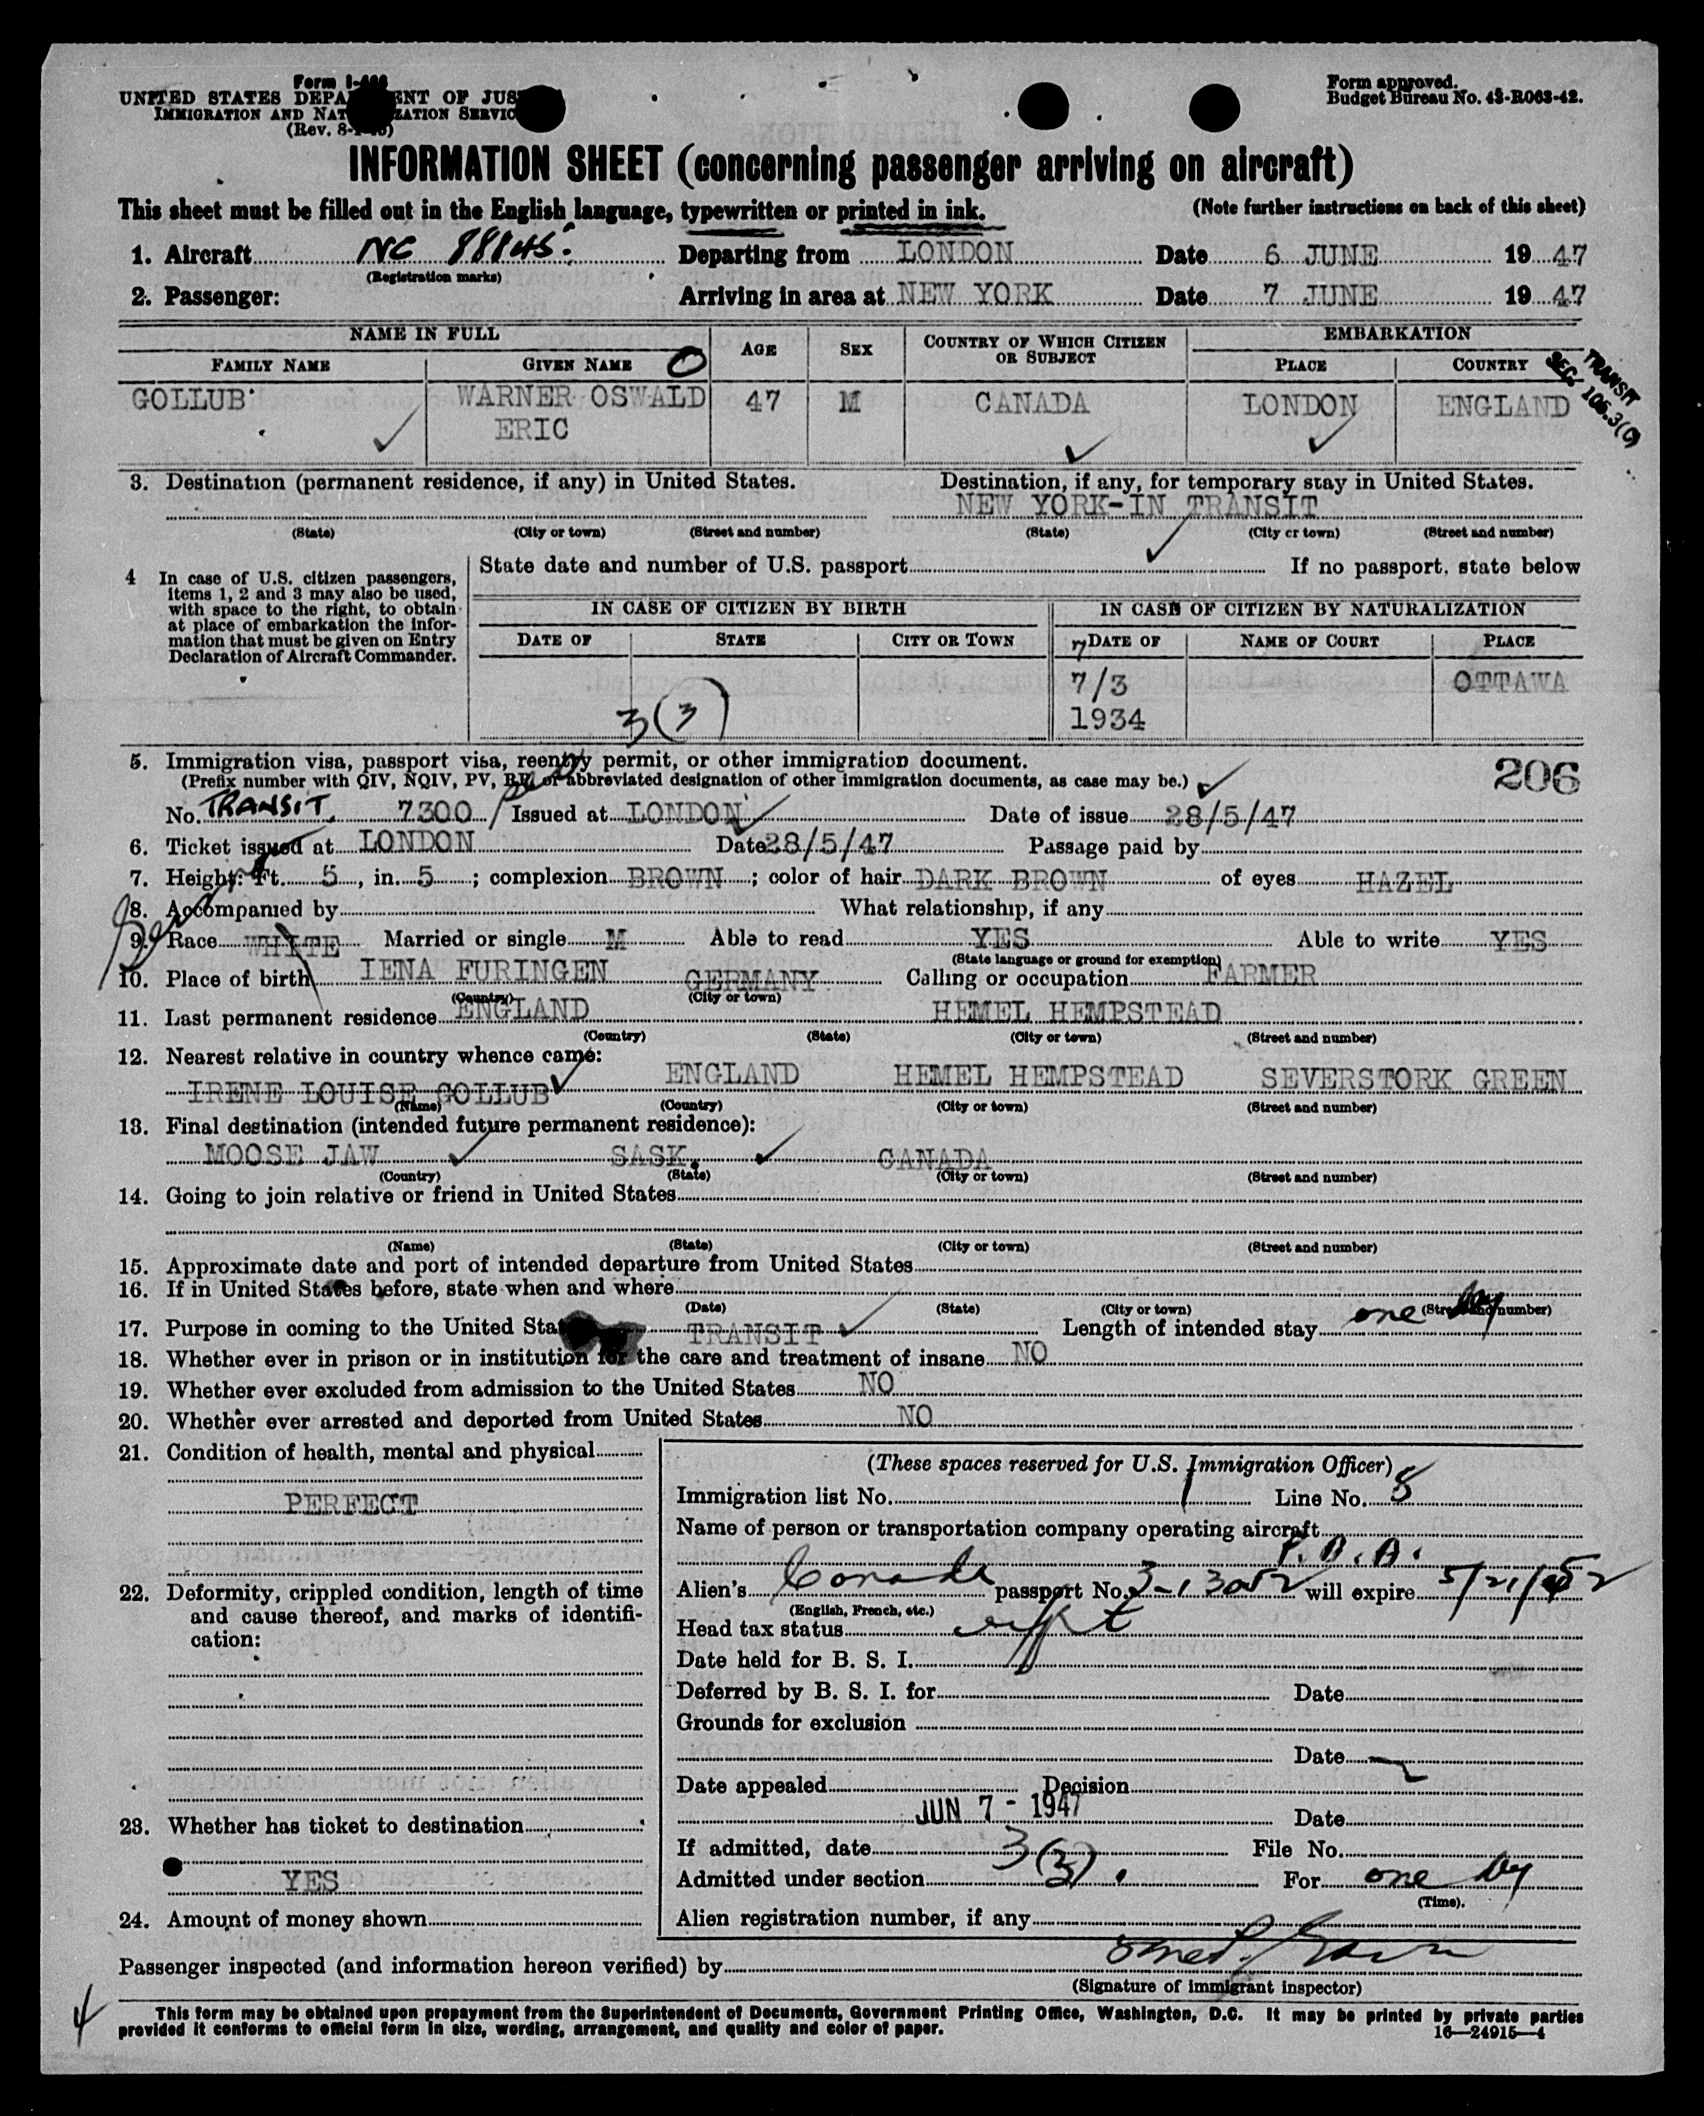 Form I-466
UNITED STATES DEPARTMENT OF JUSTICE
IMMIGRATION AND NATURALIZATION SERVICE
(Rev. 8-1-45)
Form approved.
Budget Bureau No. 43-R063-42.
INFORMATION SHEET (concerning passenger arriving on aircraft)
This sheet must be filled out in the English language, typewritten or printed in ink. (Note further instructions on back of this sheet)
1. Aircraft NC 88845 Departing from LONDON Date 6 JUNE 1947
(Registration marks)
2. Passenger: Arriving in area at NEW YORK Date 7 JUNE 1947
NAME IN FULL AGE SEX COUNTRY OF WHICH CITIZEN OR SUBJECT EMBARKATION
FAMILY NAME GIVEN NAME O PLACE COUNTRY
TRANSIT
SEC. 106.3(C)
GOLLUB WARNER OSWALD 47 M CANADA LONDON ENGLAND
ERIC
3. Destination (permanent residence, if any) in United States. Destination, if any, for temporary stay in United States.
NEW YORK-IN TRANSIT
(State) (City or town) (Street and number) (State) (City or town) (Street and number)
4 In case of U.S. citizen passengers, items 1, 2 and 3 may also be used, with space to the right, to obtain at place of embarkation the information that must be given on Entry Declaration of Aircraft Commander.
State date and number of U.S. passport If no passport, state below
IN CASE OF CITIZEN BY BIRTH IN CASE OF CITIZEN BY NATURALIZATION
DATE OF STATE CITY OR TOWN DATE OF NAME OF COURT PLACE
7/3 OTTAWA
1934
3(3)
5. Immigration visa, passport visa, reentry permit, or other immigration document.
(Prefix number with QIV, NQIV, PV, RP, or abbreviated designation of other immigration documents, as case may be.)
206
No. TRANSIT 7300 Issued at LONDON Date of issue 28/5/47
6. Ticket issued at LONDON Date 28/5/47 Passage paid by
7. Height: Ft. 5, in. 5; complexion BROWN; color of hair DARK BROWN of eyes HAZEL
8. Accompanied by What relationship, if any
9. Race WHITE Married or single M Able to read YES Able to write YES
(State language or ground for exemption)
10. Place of birth IENA FURINGEN GERMANY Calling or occupation FARMER
(Country) (City or town)
11. Last permanent residence ENGLAND HEMEL HEMPSTEAD
(Country) (State) (City or town) (Street and number)
12. Nearest relative in country whence came:
IRENE LOUISE GOLLUB ENGLAND HEMEL HEMPSTEAD SEVERSTORK GREEN
(Name) (Country) (City or town) (Street and number)
13. Final destination (intended future permanent residence):
MOOSE JAW SASK. CANADA
(Country) (State) (City or town) (Street and number)
14. Going to join relative or friend in United States
(Name) (State) (City or town) (Street and number)
15. Approximate date and port of intended departure from United States
16. If in United States before, state when and where
(Date) (State) (City or town) (Street and number)
17. Purpose in coming to the United States TRANSIT Length of intended stay one Dy
18. Whether ever in prison or in institution for the care and treatment of insane NO
19. Whether ever excluded from admission to the United States NO
20. Whether ever arrested and deported from United States NO
21. Condition of health, mental and physical
PERFECT
22. Deformity, crippled condition, length of time
and cause thereof, and marks of identifi-
cation:
23. Whether has ticket to destination
YES
24. Amount of money shown
(These spaces reserved for U.S. Immigration Officer)
Immigration list No. 1 Line No. 8
Name of person or transportation company operating aircraft
P.A.A.
Alien's Canada passport No. 3-13052 will expire 5/21/52
(English, French, etc.)
Head tax status
Date held for B. S. I.
Deferred by B. S. I. for Date
Grounds for exclusion
Date
Date appealed Decision
JUN 7 - 1947 Date
If admitted, date File No.
Admitted under section 3(3). For one Dy
(Time).
Alien registration number, if any
Passenger inspected (and information hereon verified) by
(Signature of immigrant inspector)
4
This form may be obtained upon prepayment from the Superintendent of Documents, Government Printing Office, Washington, D.C. It may be printed by private parties
provided it conforms to official form in size, wording, arrangement, and quality and color of paper.
16—24915—4